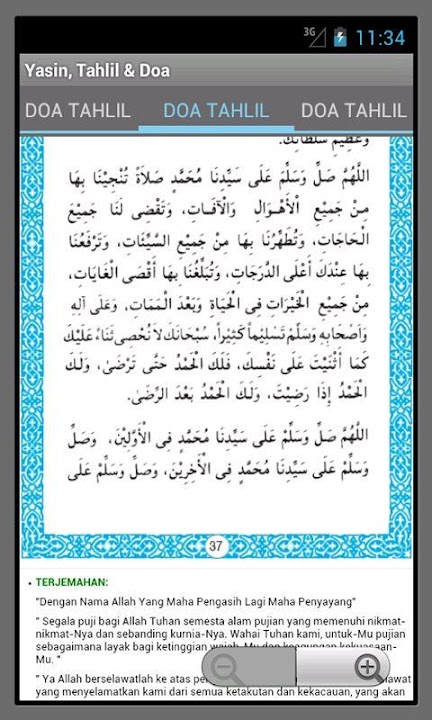 3G
11:34
Yasin, Tahlil & Doa
DOA TAHLIL
DOA TAHLIL
DOA TAHLIL
وَعَظِيْمِ سُلْطَانِكَ.
اَللّٰهُمَّ صَلِّ وَسَلِّمْ عَلَى سَيِّدِنَا مُحَمَّدٍ صَلَاةً تُنْجِيْنَا بِهَا
مِنْ جَمِيْعِ الْأَهْوَالِ وَالْآفَاتِ، وَتَقْضِى لَنَا جَمِيْعَ
الْحَاجَاتِ، وَتُطَهِّرُنَا بِهَا مِنْ جَمِيْعِ السَّيِّئَاتِ، وَتَرْفَعُنَا
بِهَا عِنْدَكَ أَعْلَى الدَّرَجَاتِ، وَتُبَلِّغُنَا بِهَا أَقْصَى الْغَايَاتِ،
مِنْ جَمِيْعِ الْخَيْرَاتِ فِى الْحَيَاةِ وَبَعْدَ الْمَمَاتِ، وَعَلَى آلِهِ
وَاَصْحَابِهِ وَسَلَّمَ تَسْلِيْمًا كَثِيْرًا، سُبْحَانَكَ لَا نُحْصِى ثَنَاءً عَلَيْكَ
كَمَا أَثْنَيْتَ عَلَى نَفْسِكَ، فَلَكَ الْحَمْدُ حَتَّى تَرْضَى، وَلَكَ
الْحَمْدُ إِذَا رَضِيْتَ، وَلَكَ الْحَمْدُ بَعْدَ الرِّضَى.
اَللّٰهُمَّ صَلِّ وَسَلِّمْ عَلَى سَيِّدِنَا مُحَمَّدٍ فِى الْأَوَّلِيْنَ، وَصَلِّ
وَسَلِّمْ عَلَى سَيِّدِنَا مُحَمَّدٍ فِى الْآخِرِيْنَ، وَصَلِّ وَسَلِّمْ عَلَى
37
• TERJEMAHAN:
"Dengan Nama Allah Yang Maha Pengasih Lagi Maha Penyayang"
" Segala puji bagi Allah Tuhan semesta alam pujian yang memenuhi nikmat-
nikmat-Nya dan sebanding kurnia-Nya. Wahai Tuhan kami, untuk-Mu pujian
sebagaimana layak bagi ketinggian wajah-Mu dan keagungan kekuasaan-
Mu. "
" Ya Allah berselawatlah ke atas
yang menyelamatkan kami dari semua ketakutan dan kekacauan, yang akan